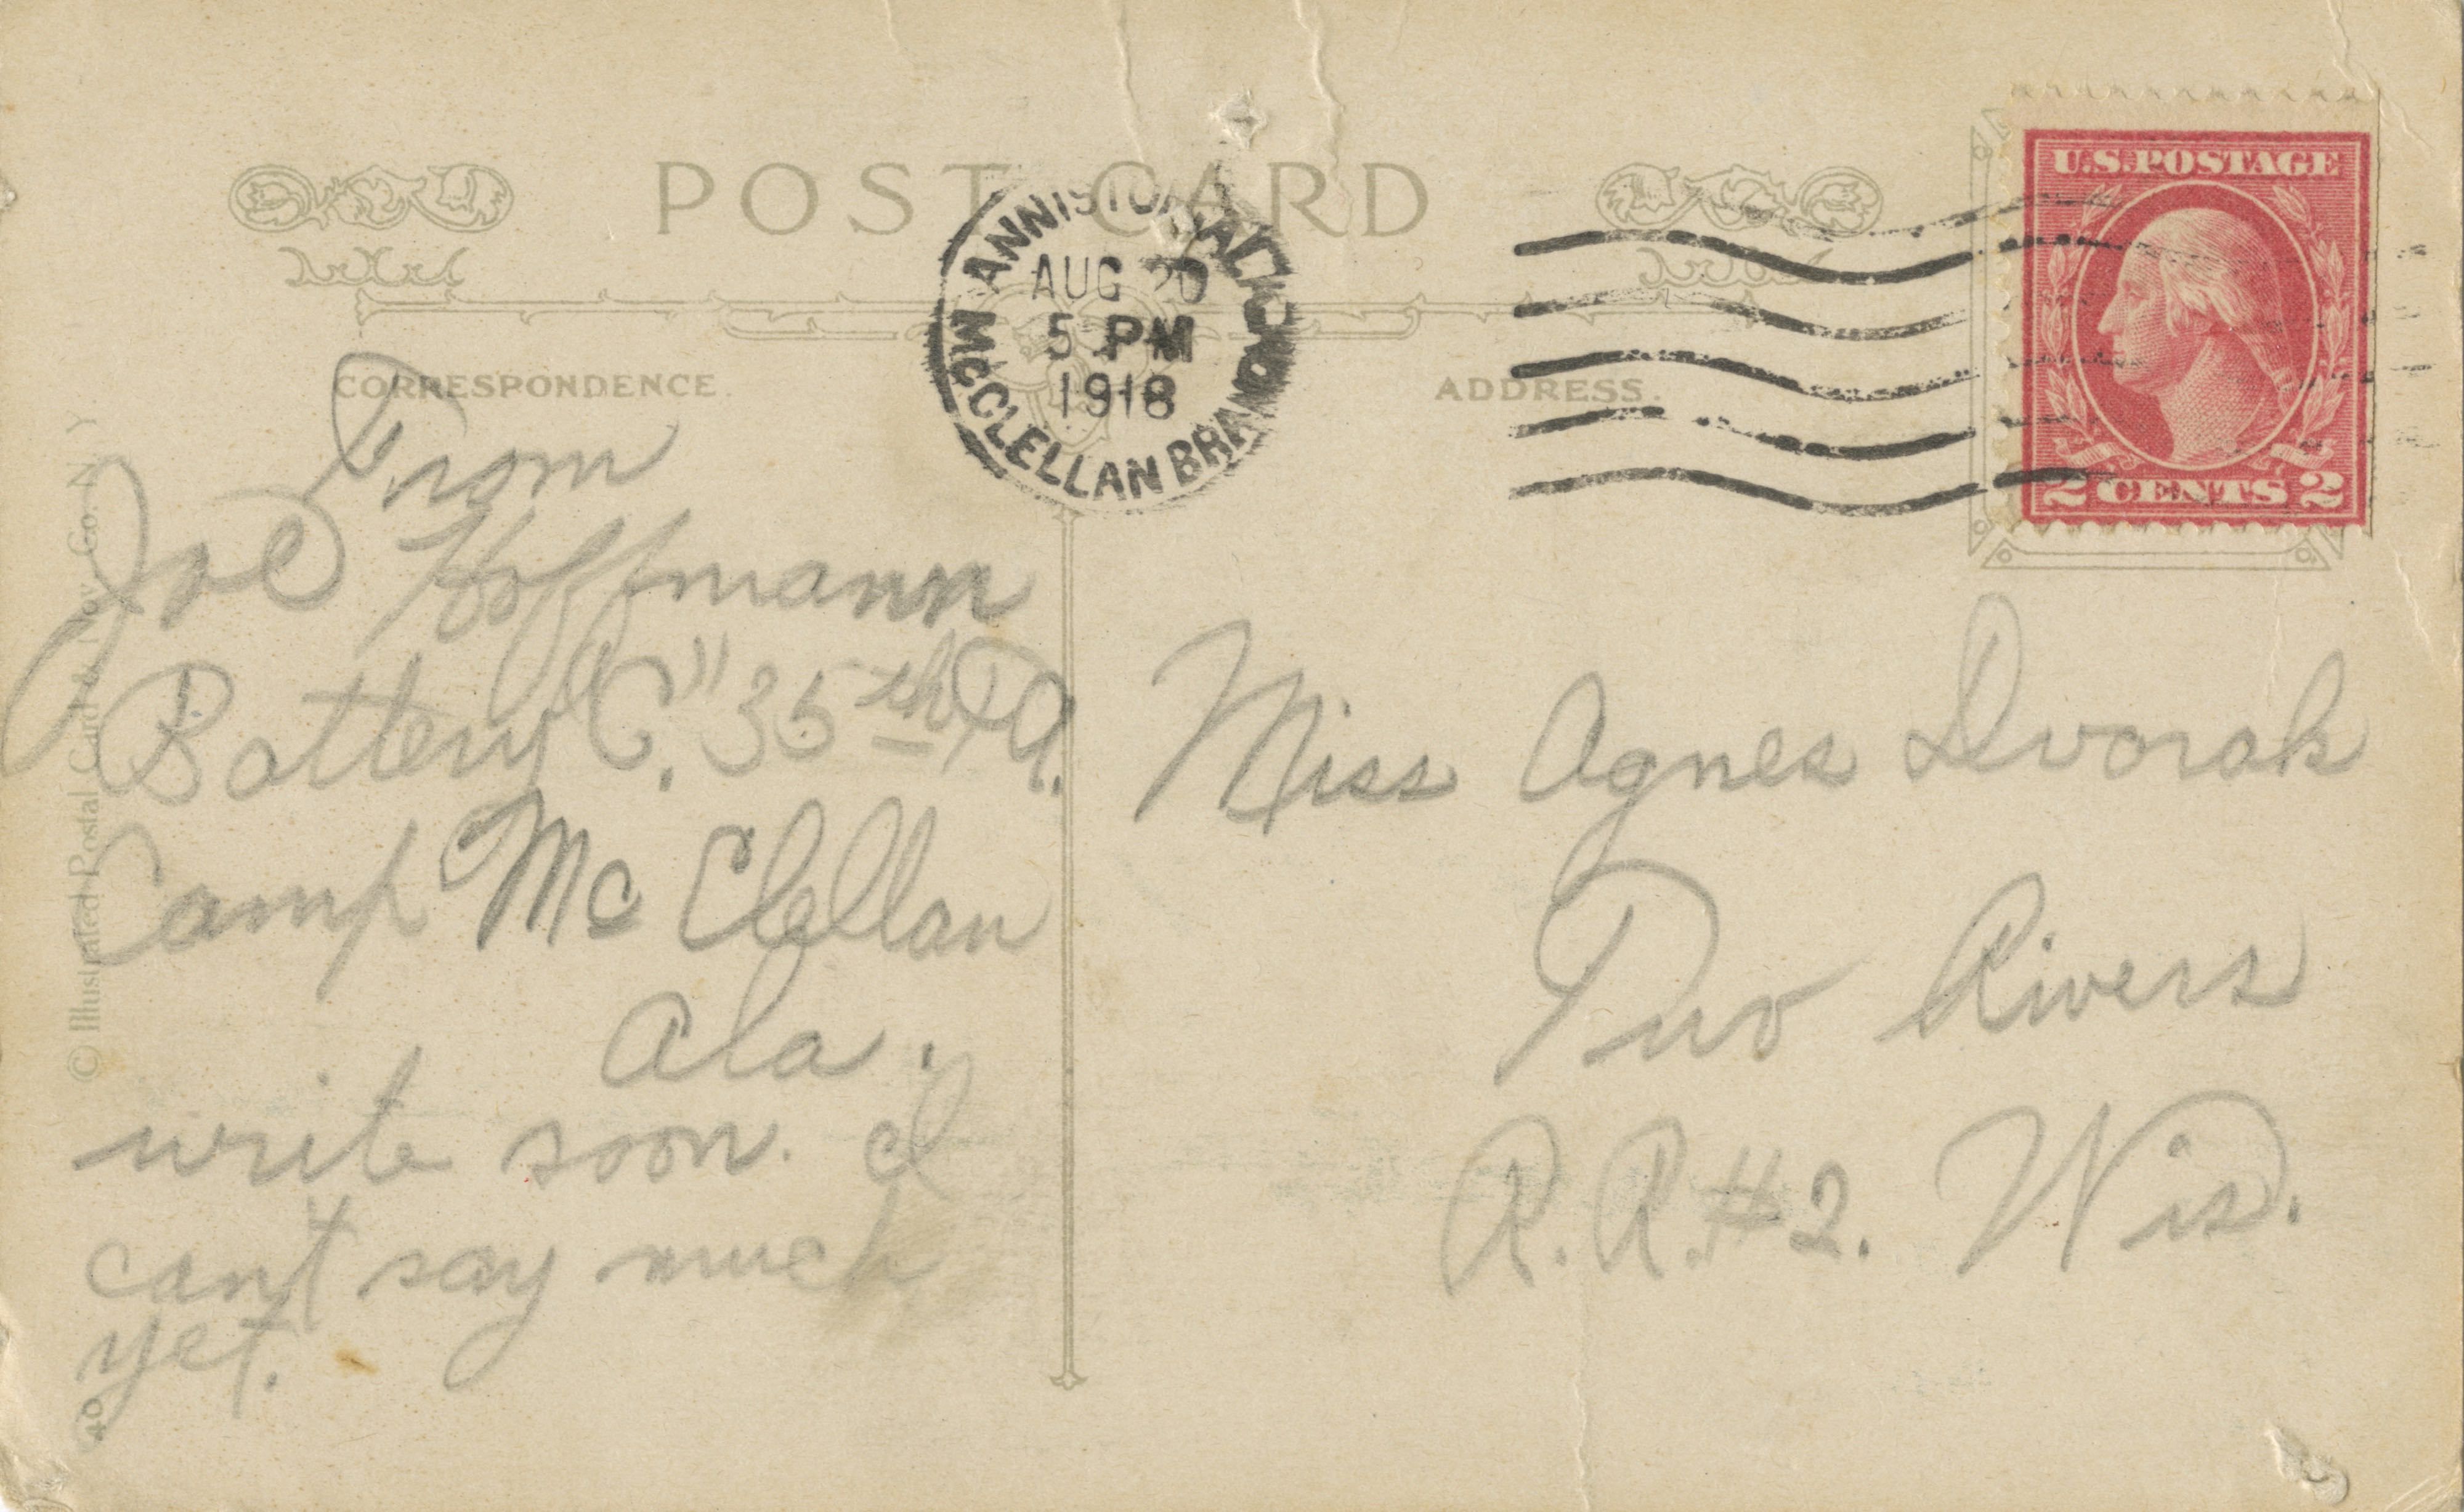 POST CARD
ANNISTON, ALA.
AUG 20
5 PM
1918
MCCLELLAN BRANCH
U.S. POSTAGE
2 CENTS 2
CORRESPONDENCE.
ADDRESS.
From
Joe Hoffmann
Battery "C". 35th F.A.
Camp Mc Clellan
Ala.
write soon. I
can't say much
yet.
Miss Agnes Dvorak
Two Rivers
R.R.#2. Wis.
© Illustrated Postal Card & Nov. Co. N Y
40